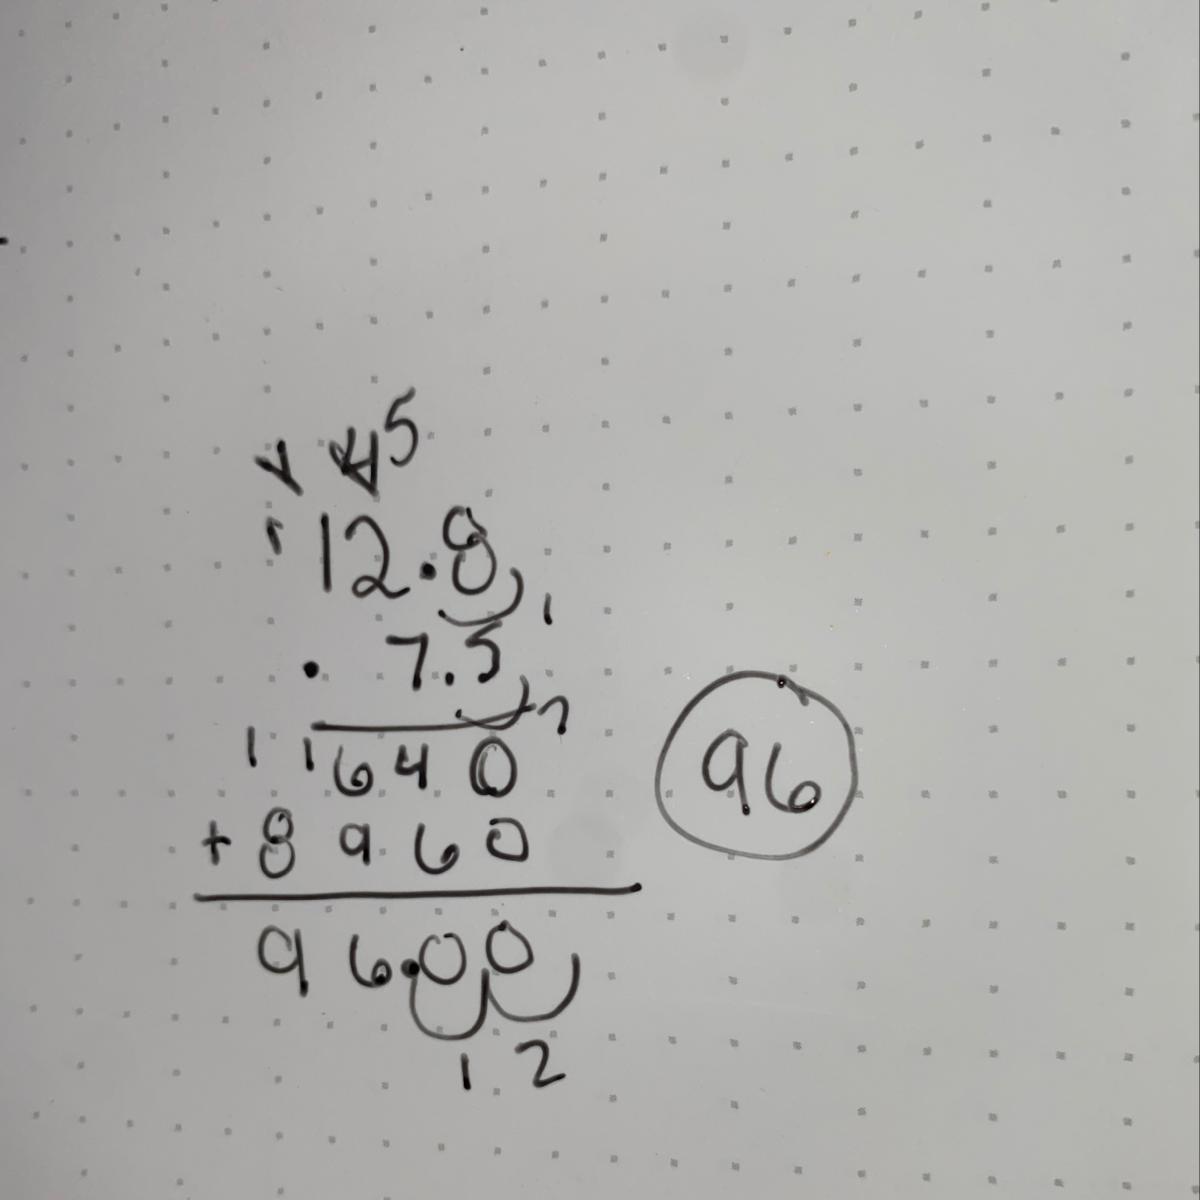 1 4 5
1 12.8 1
. 7.5 2
1 1 640 96
+ 8960
96.00
1 2